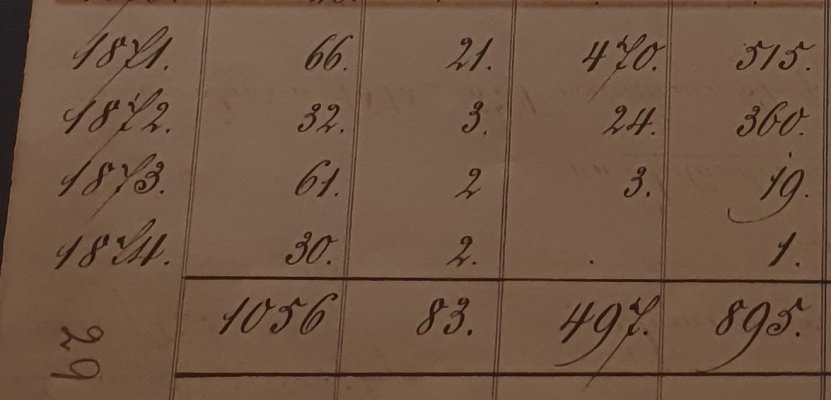 1871. 66. 21. 470. 515.
1872. 32. 3. 24. 360.
1873. 61. 2 3. 19.
1874. 30. 2. . 1.
1056 83. 497. 895.
29